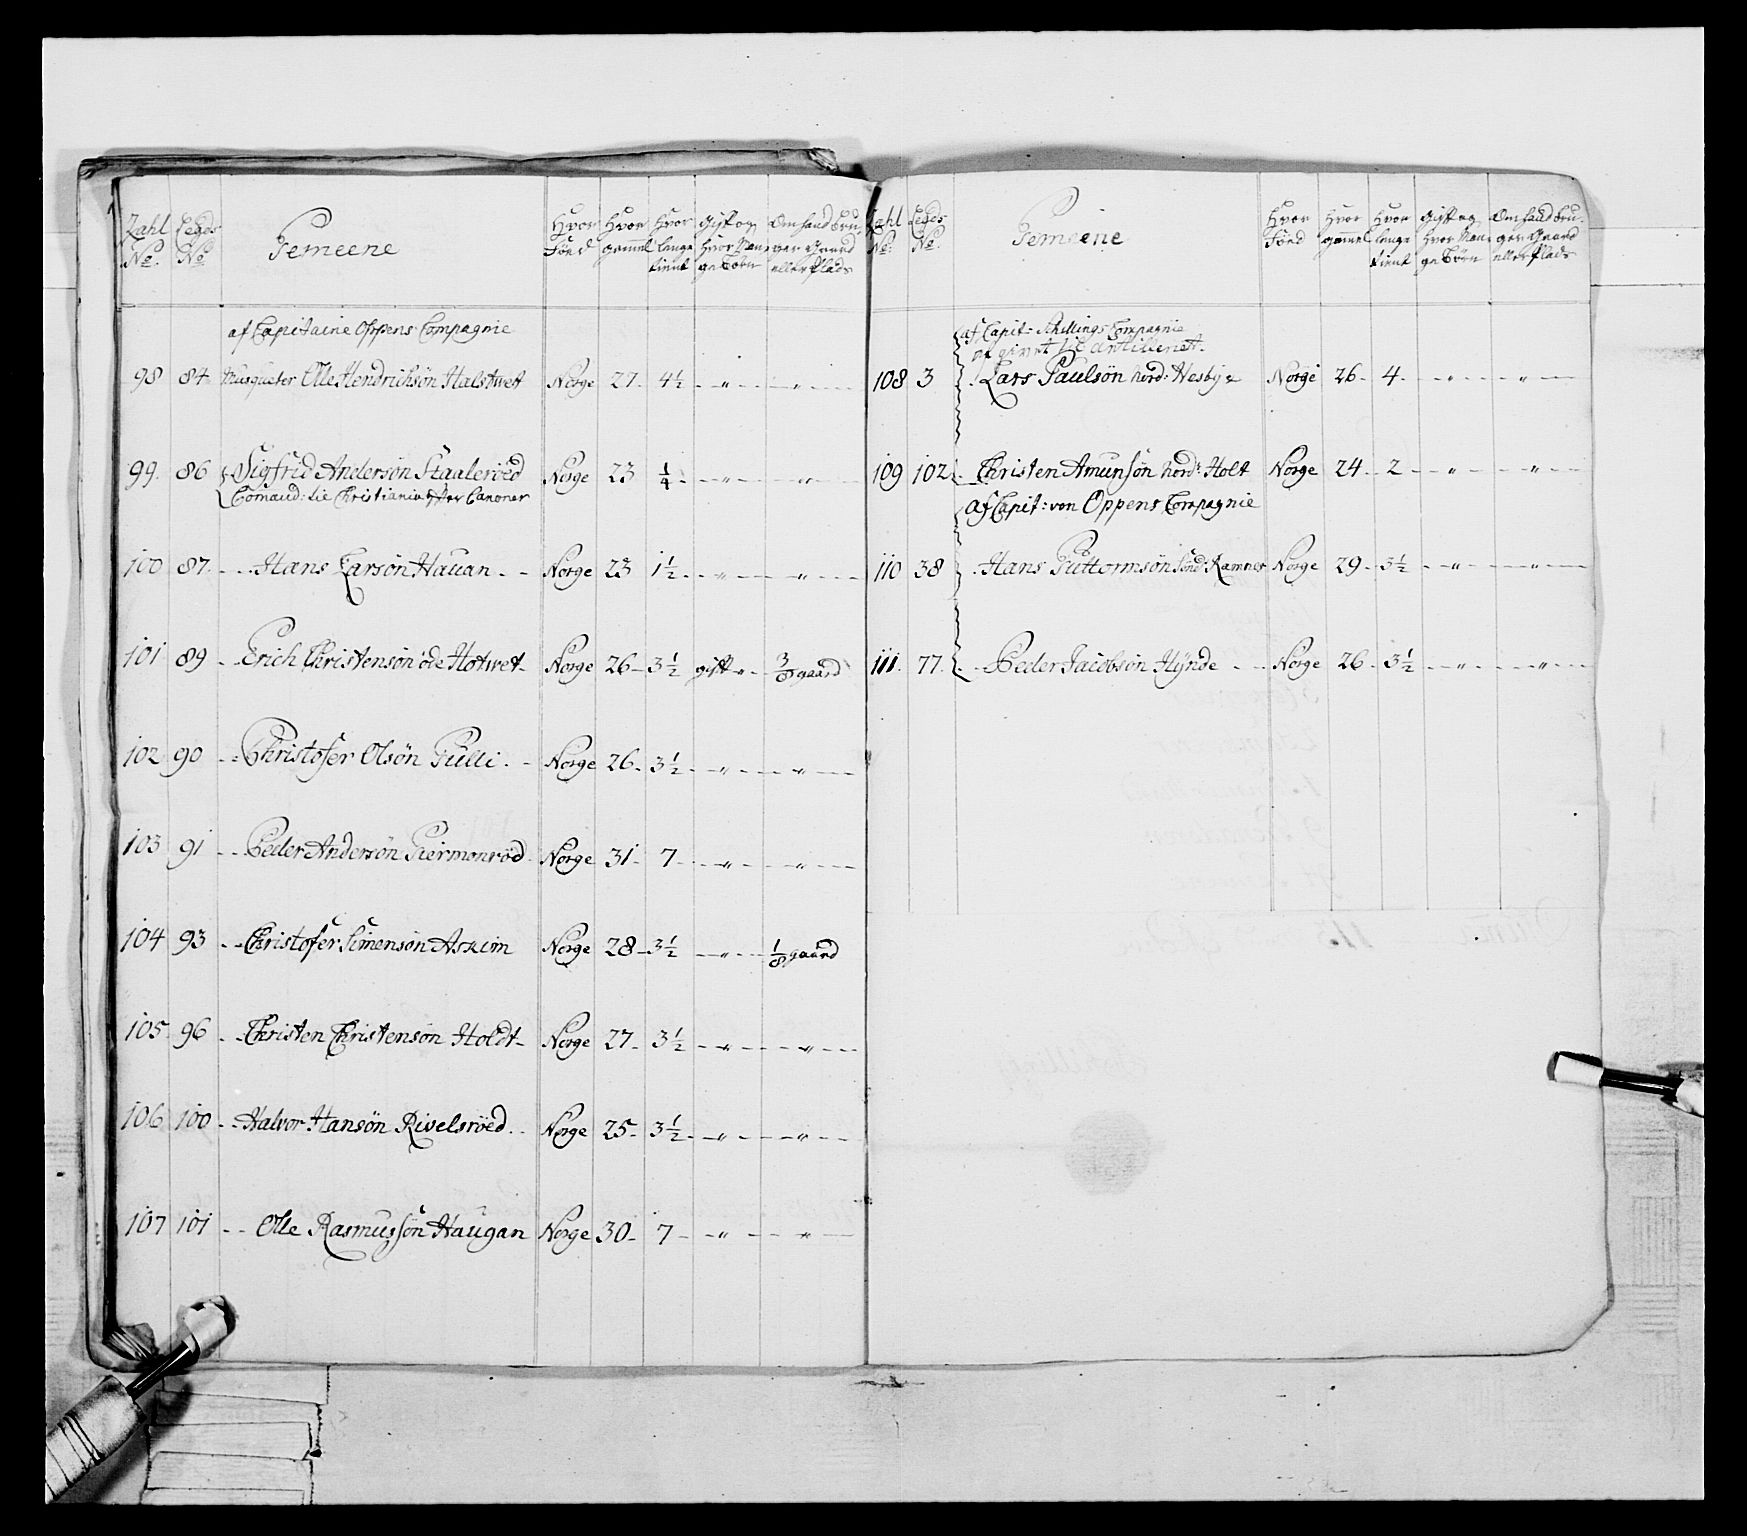 Zahl No. Legds No. Gemeene Hvor Föed Hvor gammel Hvor lenge tient Gift og Hvor Mange Börn Om hand bruger Gaard eller Plads
af Capitaine Oppens Compagnie
98 84 Musqueter Olle Hendrichsön Halstwet Norge 27 4½ " "
99 86 Sigfrid Andersön Staaleröed Norge 23 ¼ " "
Comand: til Christiania
100 87 Hans Larsön Hauan Norge 23 1½ " "
101 89 Erich Christensön öde Hotwet Norge 26 3½ gift " 3/8 gaard
102 90 Christofer Olsön Gulli Norge 26 3½ " "
103 91 Peder Andersön Giermonröd Norge 31 7 " "
104 93 Christofer Simensön Askim Norge 28 3½ " 1/8 gaard
105 96 Christen Christensön Holdt Norge 27 3½ " "
106 100 Halvor Hansön Rivelsröed Norge 25 3½ " "
107 101 Olle Rasmussön Haugan Norge 30 7 " "
Zahl No. Legds No. Gemeene Hvor Föed Hvor gammel Hvor lenge tient Gift og Hvor Mange Börn Om hand bruger Gaard eller Plads
af Capit: Schillings Compagnie
givet til Artilleriet
108 3 Lars Paulsön nord: Wesbye Norge 26 4 " "
109 102 Christen Amunsön nord: Holt Norge 24 2 " "
af Capit: von Oppens Compagnie
110 38 Hans Guttormsön Sönd: Ramnes Norge 29 3½ " "
111 77 Peder Jacobsön Hÿnde Norge 26 3½ " "